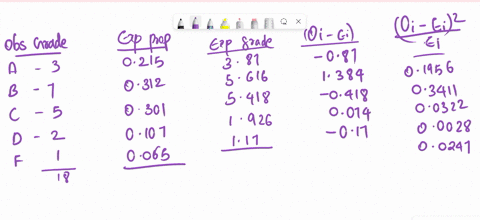 Obs Grade Exp prop Exp Grade (Oi - Ei) (Oi - Ei)² / Ei
A - 3 0.215 3.87 -0.87 0.1956
B - 7 0.312 5.616 1.384 0.3411
C - 5 0.301 5.418 -0.418 0.0322
D - 2 0.107 1.926 0.074 0.0028
F 1 0.065 1.17 -0.17 0.0247
18